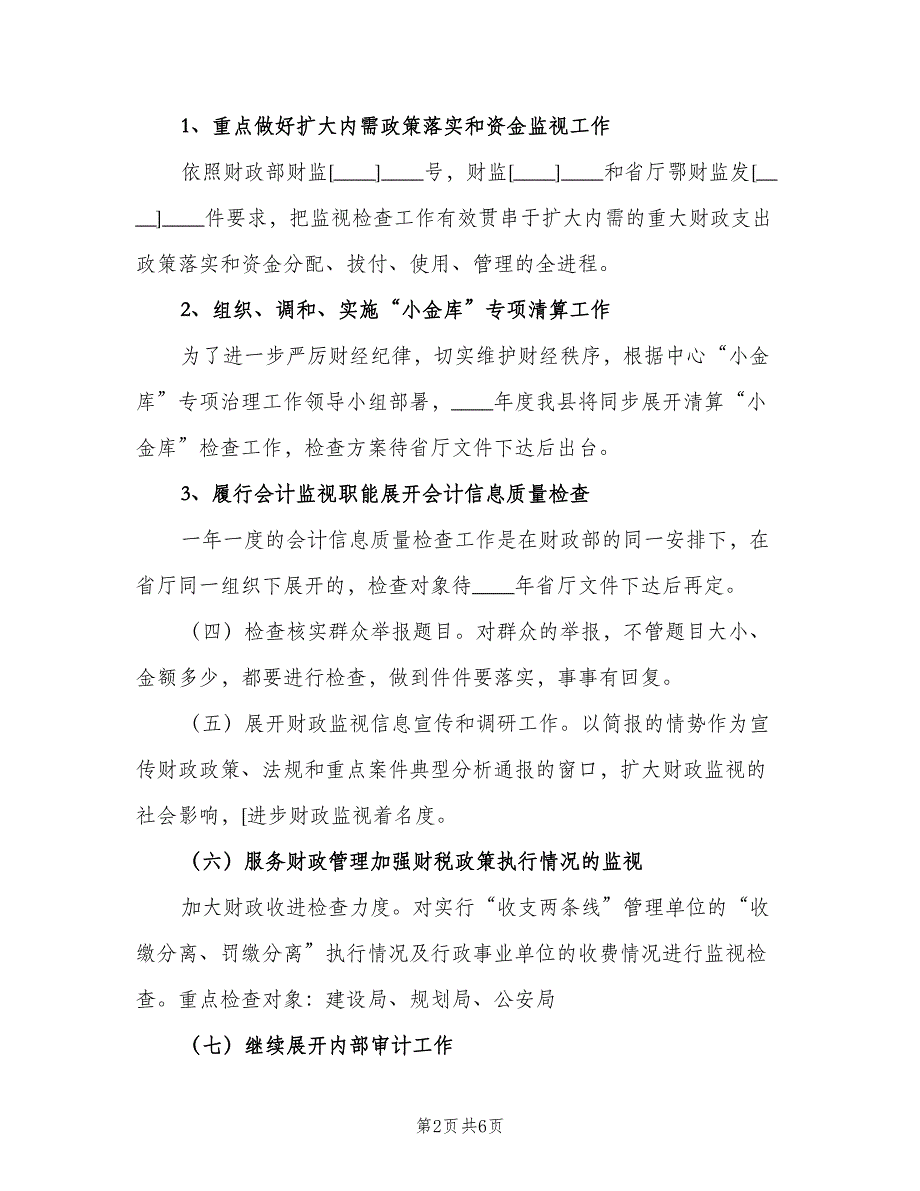 1、重点做好扩大内需政策落实和资金监视工作
依照财政部财监[____]____号，财监[____]____和省厅鄂财监发[__
__]____件要求，把监视检查工作有效贯串于扩大内需的重大财政支出
政策落实和资金分配、拔付、使用、管理的全进程。
2、组织、调和、实施“小金库”专项清算工作
为了进一步严厉财经纪律，切实维护财经秩序，根据中心“小金
库”专项治理工作领导小组部署，____年度我县将同步展开清算“小
金库”检查工作，检查方案待省厅文件下达后出台。
3、履行会计监视职能展开会计信息质量检查
一年一度的会计信息质量检查工作是在财政部的同一安排下，在
省厅同一组织下展开的，检查对象待____年省厅文件下达后再定。
（四）检查核实群众举报题目。对群众的举报，不管题目大小、
金额多少，都要进行检查，做到件件要落实，事事有回复。
（五）展开财政监视信息宣传和调研工作。以简报的情势作为宣
传财政政策、法规和重点案件典型分析通报的窗口，扩大财政监视的
社会影响，[进步财政监视着名度。
（六）服务财政管理加强财税政策执行情况的监视
加大财政收进检查力度。对实行“收支两条线”管理单位的“收
缴分离、罚缴分离”执行情况及行政事业单位的收费情况进行监视检
查。重点检查对象：建设局、规划局、公安局
（七）继续展开内部审计工作
第2页 共6页